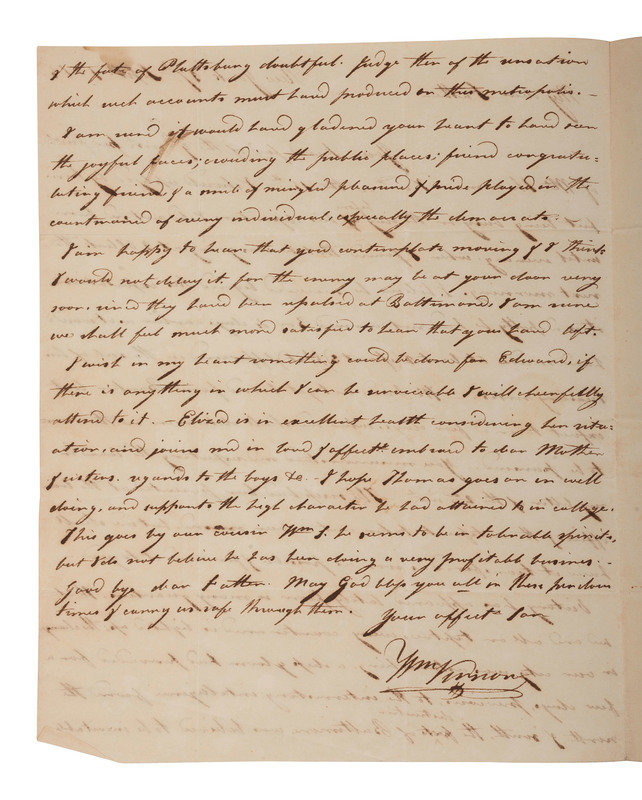 & the fate of Plattsburg doubtful. Judge then of the sensation
which such accounts must have produced on this metropolis. —
I am sure it would have gladened your heart to have seen
the joyful faces; crouding the public places; friend congratu-
lating friend & a smile of mingled pleasure & pride played in the
countenance of every individual, especially the democrats.
I am happy to hear that you contemplate moving & I think
I would not delay it, for the enemy may be at your door very
soon, since they have been repulsed at Baltimore, I am sure
we shall feel much more satisfied to hear that you have left.
I wish in my heart something could be done for Edward, if
there is anything in which I can be serviceable I will cheerfully
attend to it. — Eliza is in excellent health considering her situ-
ation, and joins me in love & affectt. embrace to dear Mother
& sisters. regards to the boys &c. I hope Thomas goes on in well
doing, and supports the high character he had attained to in college.
This goes by our cousin Wm S. he seems to be in tolerable spirits,
but I do not believe he has been doing a very profitable business. —
Good bye dear Father. May God bless you all in these perilous
times & carry us safe through them.
Your affect. Son
Wm Vernon